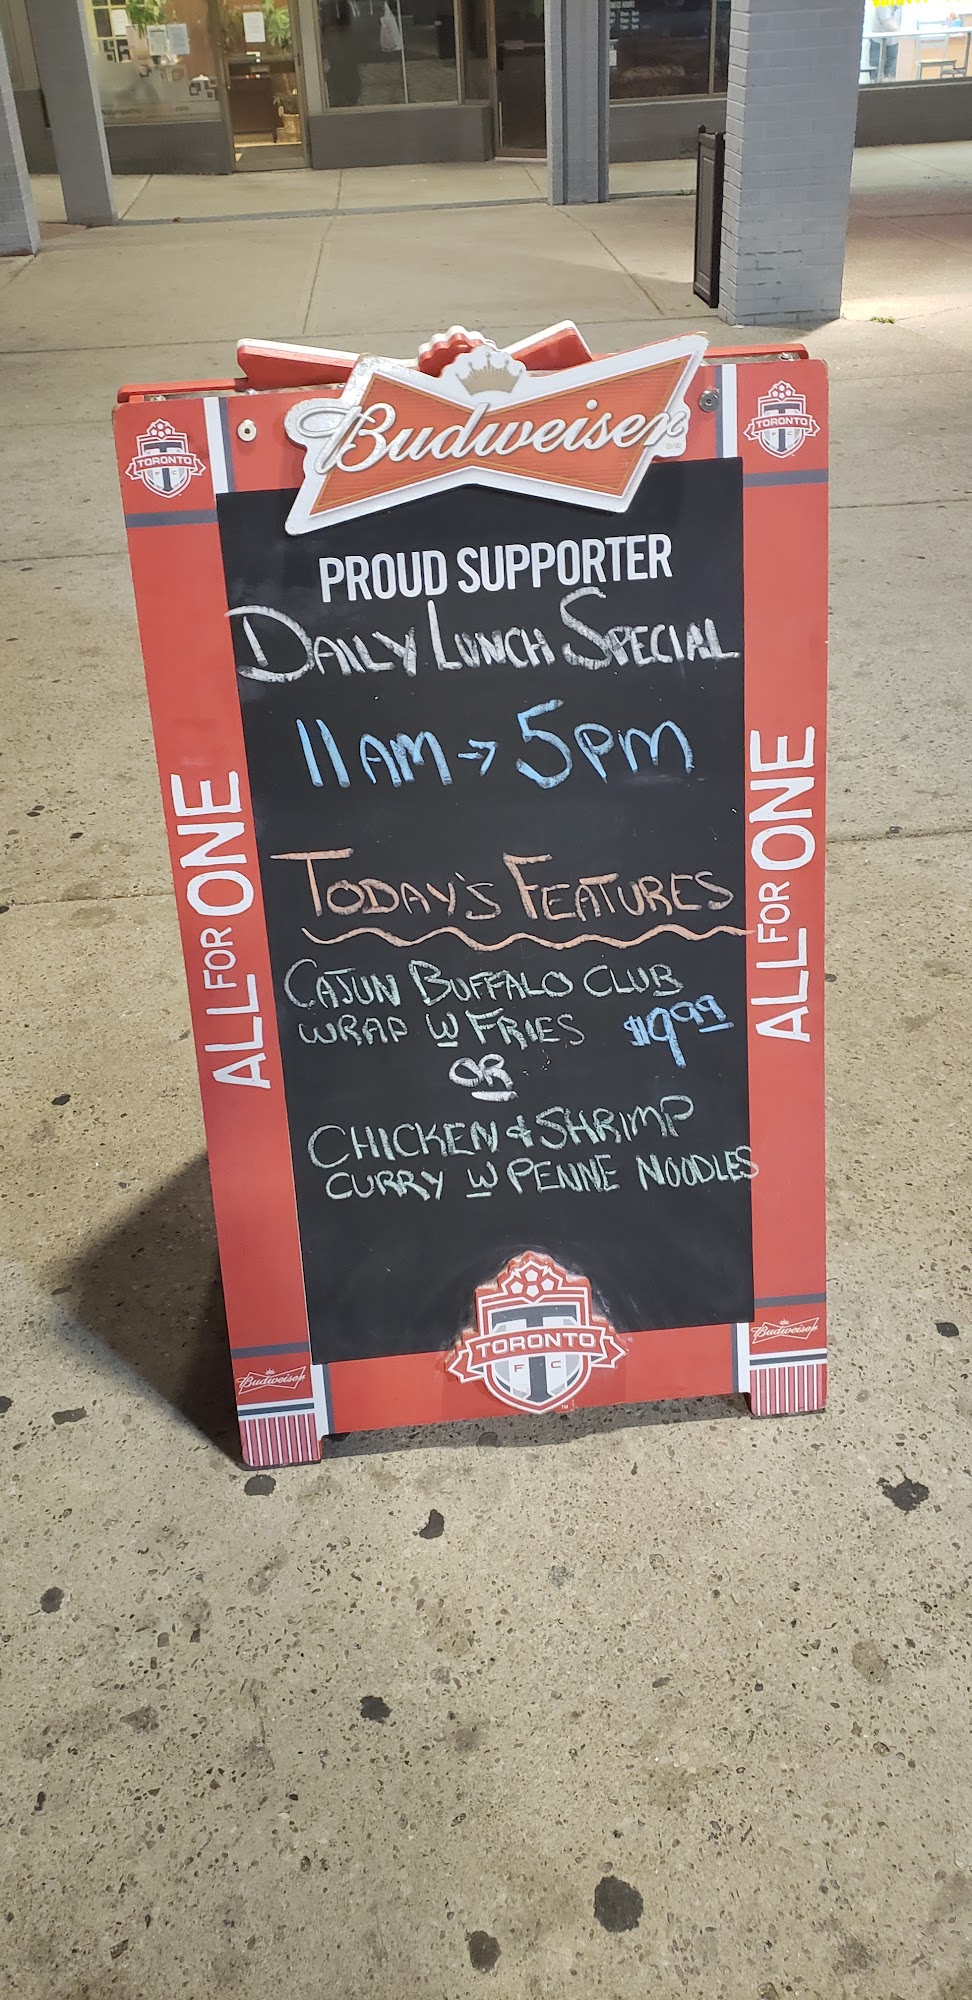 Budweiser
TORONTO
FC
TORONTO
FC
PROUD SUPPORTER
DAILY LUNCH SPECIAL
11AM → 5PM
TODAY'S FEATURES
CAJUN BUFFALO CLUB
WRAP W FRIES $9.99
OR
CHICKEN & SHRIMP
CURRY W PENNE NOODLES
ALL FOR ONE
ALL FOR ONE
TORONTO
F C
Budweiser
Budweiser